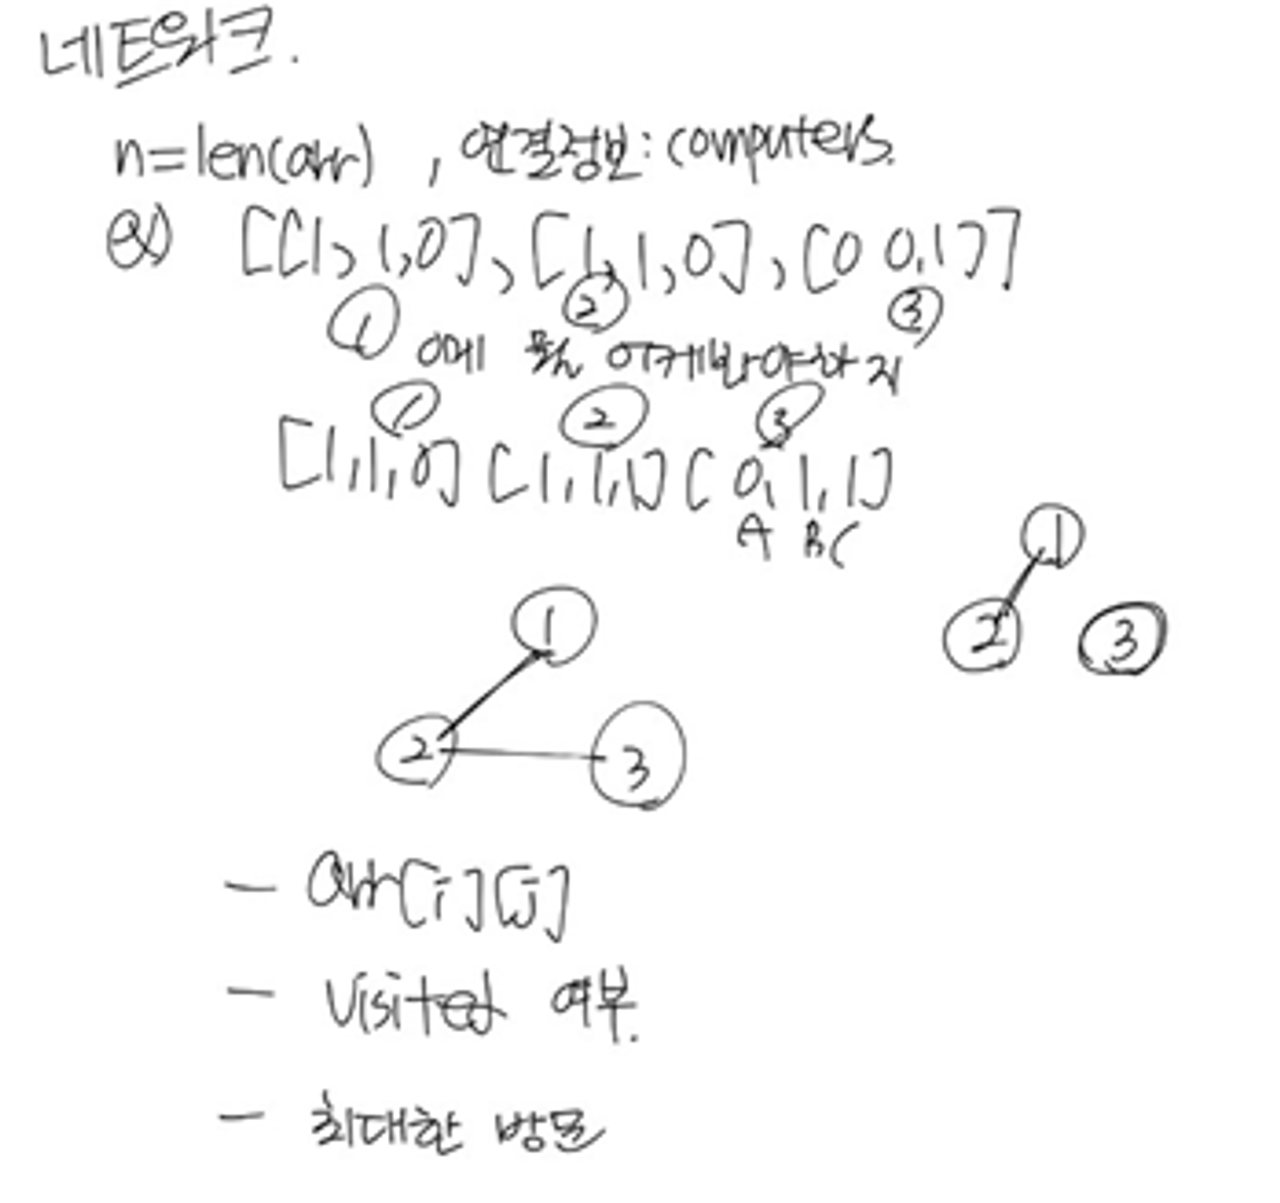 네트워크.
n=len(arr) , 연결정보: computers.
ex) [[1, 1,0], [1, 1,0], [0 0,1]]
① ② ③
① ② ③
[1,1,0] [1,1,1] [0,1,1]
A B C
①
② ③
①
② ③
- arr[i][j]
- visited 여부.
- 최대한 방문